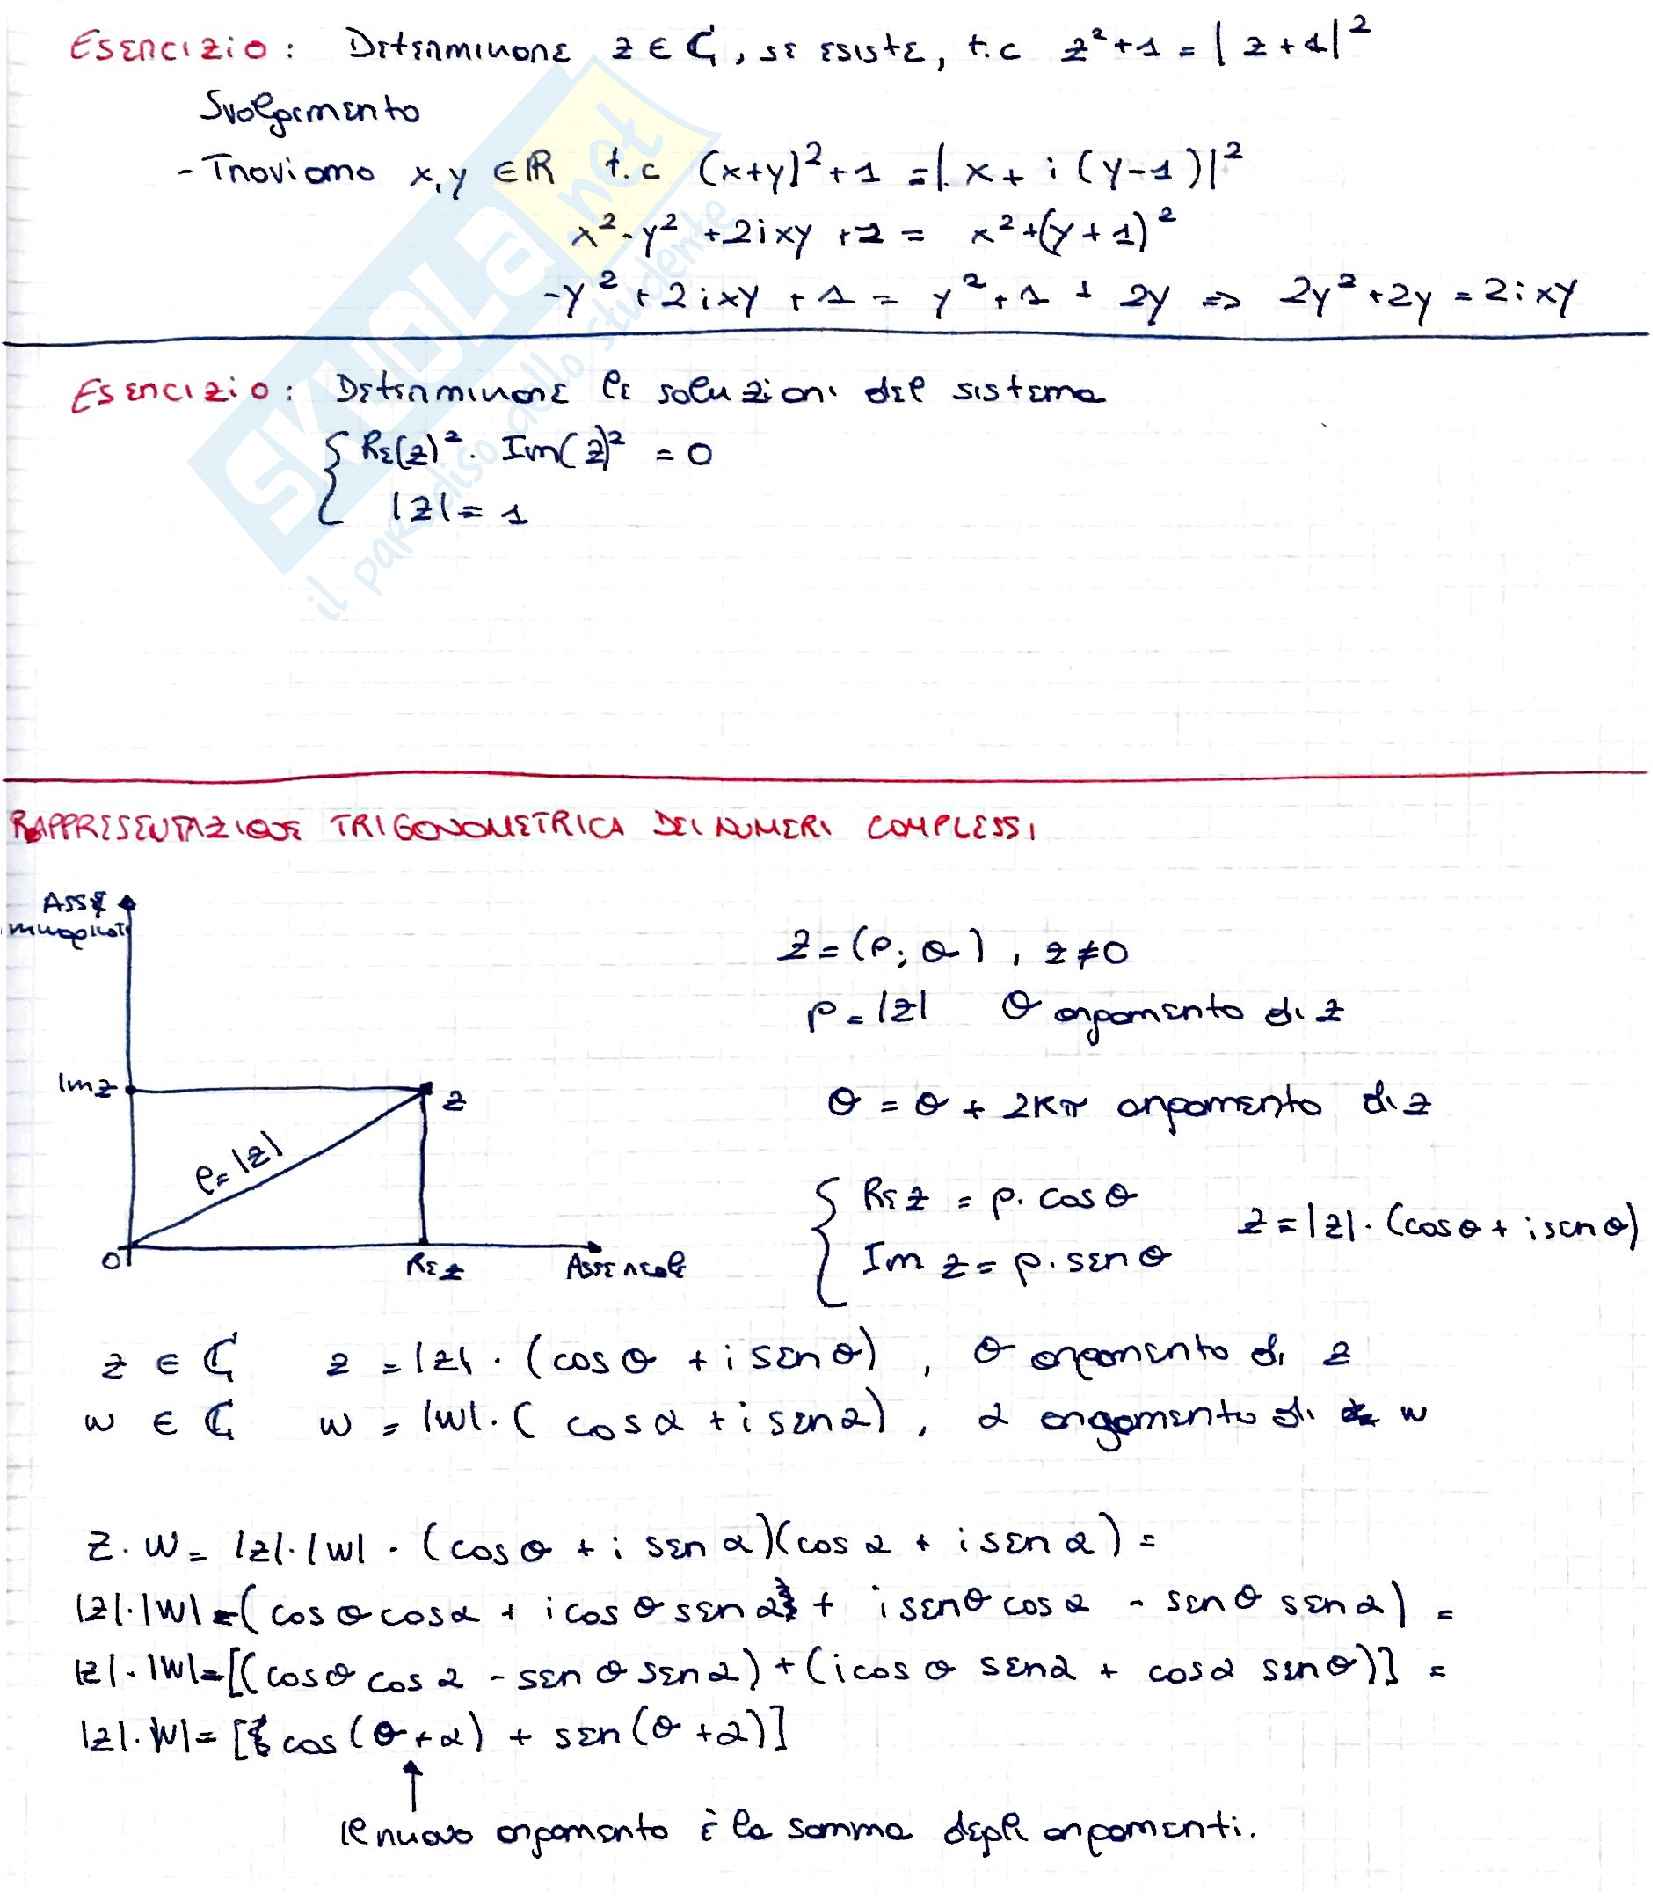 Esercizio: Determinare z ∈ ℂ, se esiste, t.c z²+1 = |z+1|²
Svolgimento
- Troviamo x,y ∈ ℝ t.c (x+y)²+1 = |x+i(y-1)|²
x²-y²+2ixy+1 = x²+(y+1)²
-y²+2ixy+1 = y²+1+2y => 2y²+2y = 2ixy
Esercizio: Determinare le soluzioni del sistema
{ Re(z)² · Im(z)² = 0
|z| = 1
SKUOLA.net
il paradiso dello studente
RAPPRESENTAZIONE TRIGONOMETRICA DEI NUMERI COMPLESSI
Asse
immaginari
z = (ρ; θ), z ≠ 0
ρ = |z| θ argomento di z
Im z
z
θ = θ + 2kπ argomento di z
ρ = |z|
{ Re z = ρ · cos θ
Im z = ρ · sen θ
z = |z| · (cos θ + i sen θ)
0
Re z
Asse reale
z ∈ ℂ z = |z| · (cos θ + i sen θ), θ argomento di z
w ∈ ℂ w = |w| · (cos α + i sen α), α argomento di w
z · w = |z| · |w| · (cos θ + i sen α)(cos α + i sen α) =
|z| · |w| = (cos θ cos α + i cos θ sen α + i sen θ cos α - sen θ sen α) =
|z| · |w| = [(cos θ cos α - sen θ sen α) + (i cos θ sen α + cos α sen θ)] =
|z| · |w| = [cos(θ+α) + sen(θ+α)]
↑
Il nuovo argomento è la somma degli argomenti.